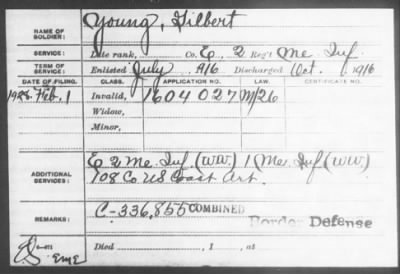 NAME OF SOLDIER: Young, Gilbert
SERVICE: Late rank, Co. E, 2 Reg't Me. Inf.
TERM OF SERVICE: Enlisted July 1916 Discharged Oct. 1916
DATE OF FILING. CLASS. APPLICATION NO. LAW. CERTIFICATE NO.
1928 Feb. 1 Invalid, 1604027 M/26
Widow,
Minor,
ADDITIONAL SERVICES: E 2 Me. Inf. (W.W.) 1 (Me. Inf. (W.W.)
108 Co US Coast Art.
REMARKS: C-336,855 COMBINED
Border Defense
EME Died , 1 , at